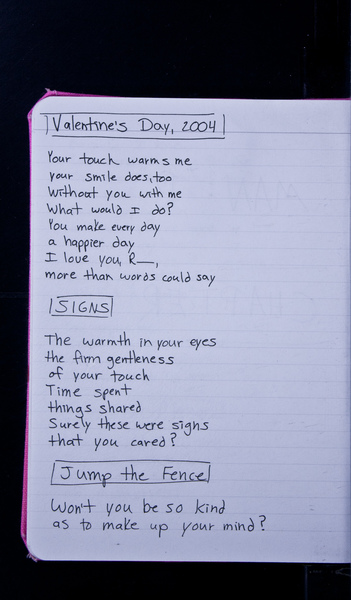 Valentine's Day, 2004
Your touch warms me
your smile does, too
Without you with me
What would I do?
You make every day
a happier day
I love you, R__,
more than words could say
SIGNS
The warmth in your eyes
the firm gentleness
of your touch
Time spent
things shared
Surely these were signs
that you cared?
Jump the Fence
Won't you be so kind
as to make up your mind?